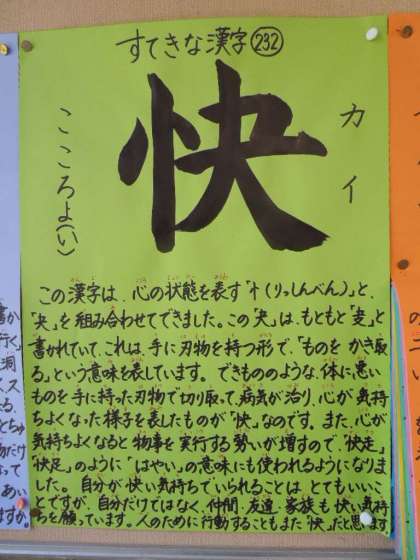 すてきな漢字 232
快
カイ
こころよ(い)
この漢字は、心の状態を表す「忄(りっしんべん)」と、
「夬」を組み合わせてできました。この「夬」は、もともと「叏」と
書かれていて、これは手に刃物を持つ形で、「ものを かき取
る」という意味を表しています。できもののような、体に悪い
ものを手に持った刃物で切り取って、病気が治り、心が気持
ちよくなった様子を表したものが「快」なのです。また、心が
気持ちよくなると物事を実行する勢いが増すので、「快走」
「快足」のように「はやい」の意味にも使われるようになりまし
た。自分が快い気持ちでいられることは とてもいい
ことですが、自分だけではなく、仲間・友達・家族も快い気持
ちを願っています。人のために行動することもまた「快」だと思います